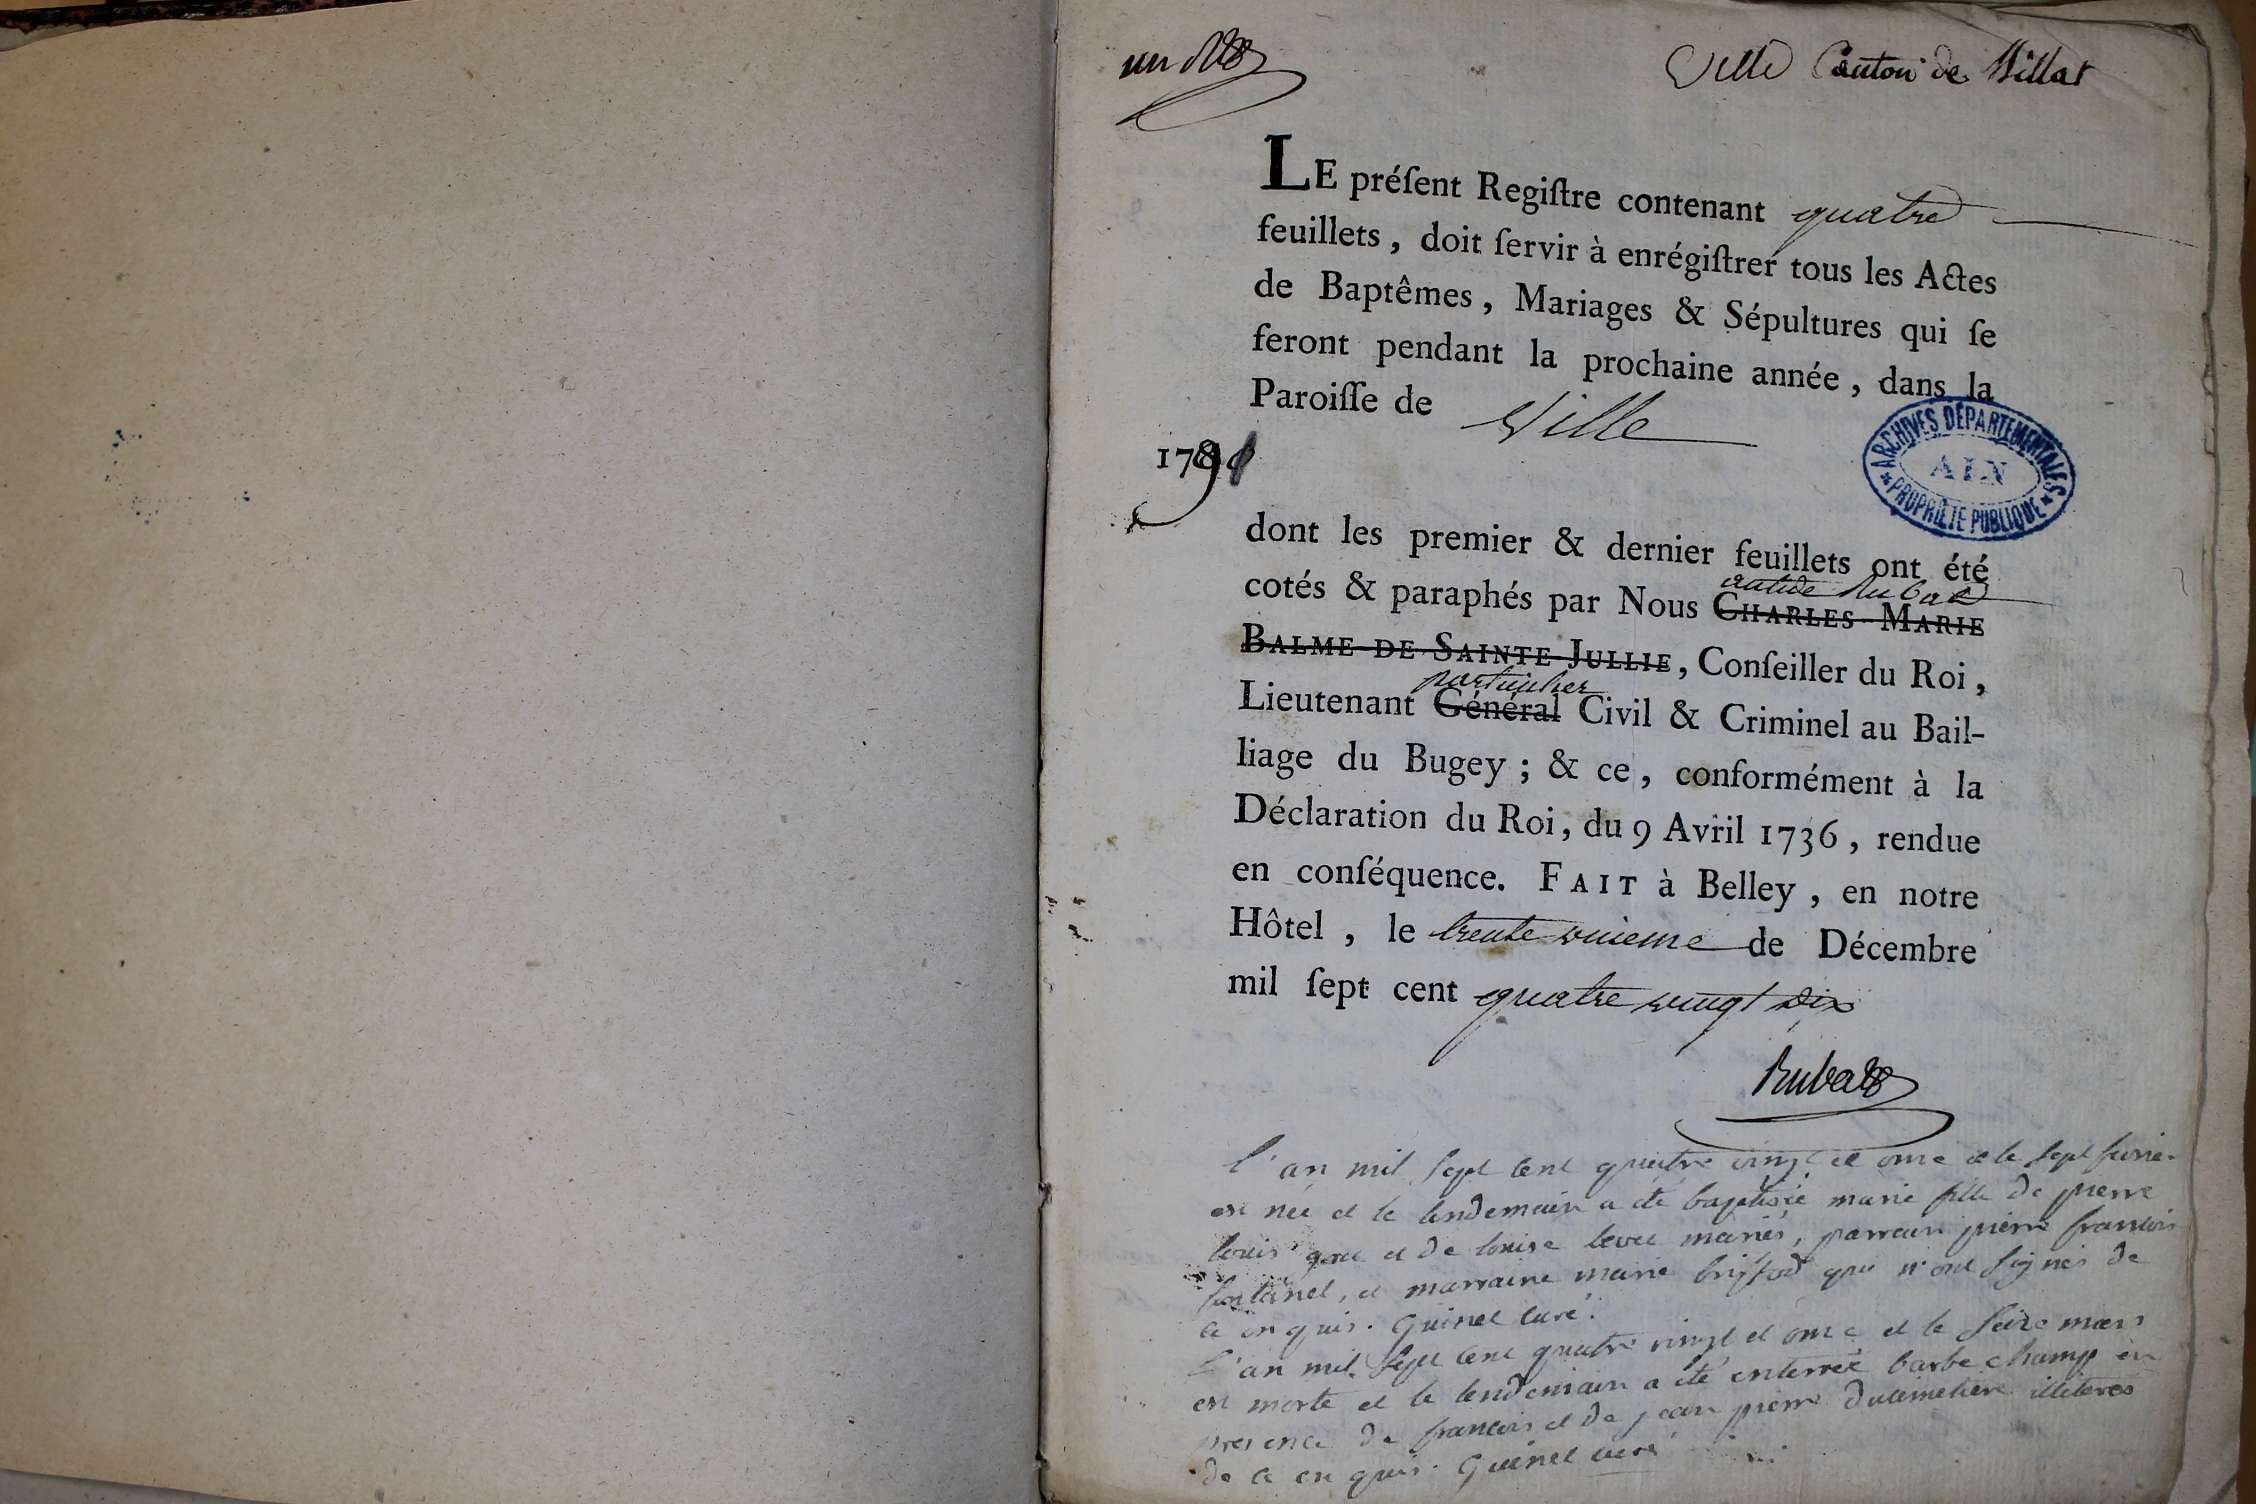 un
Ville Canton de Billat
LE préſent Regiſtre contenant quatre
feuillets, doit ſervir à enrégiſtrer tous les Actes
de Baptêmes, Mariages & Sépultures qui ſe
feront pendant la prochaine année, dans la
Paroiſſe de Ville
ARCHIVES DÉPARTEMENTALES
AIN
PROPRIÉTÉ PUBLIQUE
1791
dont les premier & dernier feuillets ont été
antide Rubat
cotés & paraphés par Nous CHARLES-MARIE
BALME DE SAINTE-JULLIE, Conſeiller du Roi,
particulier
Lieutenant Général Civil & Criminel au Bail-
liage du Bugey; & ce, conformément à la
Déclaration du Roi, du 9 Avril 1736, rendue
en conſéquence. FAIT à Belley, en notre
Hôtel, le trente unieme de Décembre
mil ſept cent quatre vingt dix
Rubat
l'an mil sept cent quatre vingt et onze et le sept
est née et le lendemain a été baptisée marie fille de pierre
louis et de louise mariés, parrain pierre francois
et marraine marie qui n'ont signés de
ce enquis. Guinet curé.
l'an mil sept cent quatre vingt et onze et le seize mars
est morte et le lendemain a été enterrée barbe champ en
presence de francois et de jean pierre ducimetiere illiteres
de ce enquis. Guinet curé